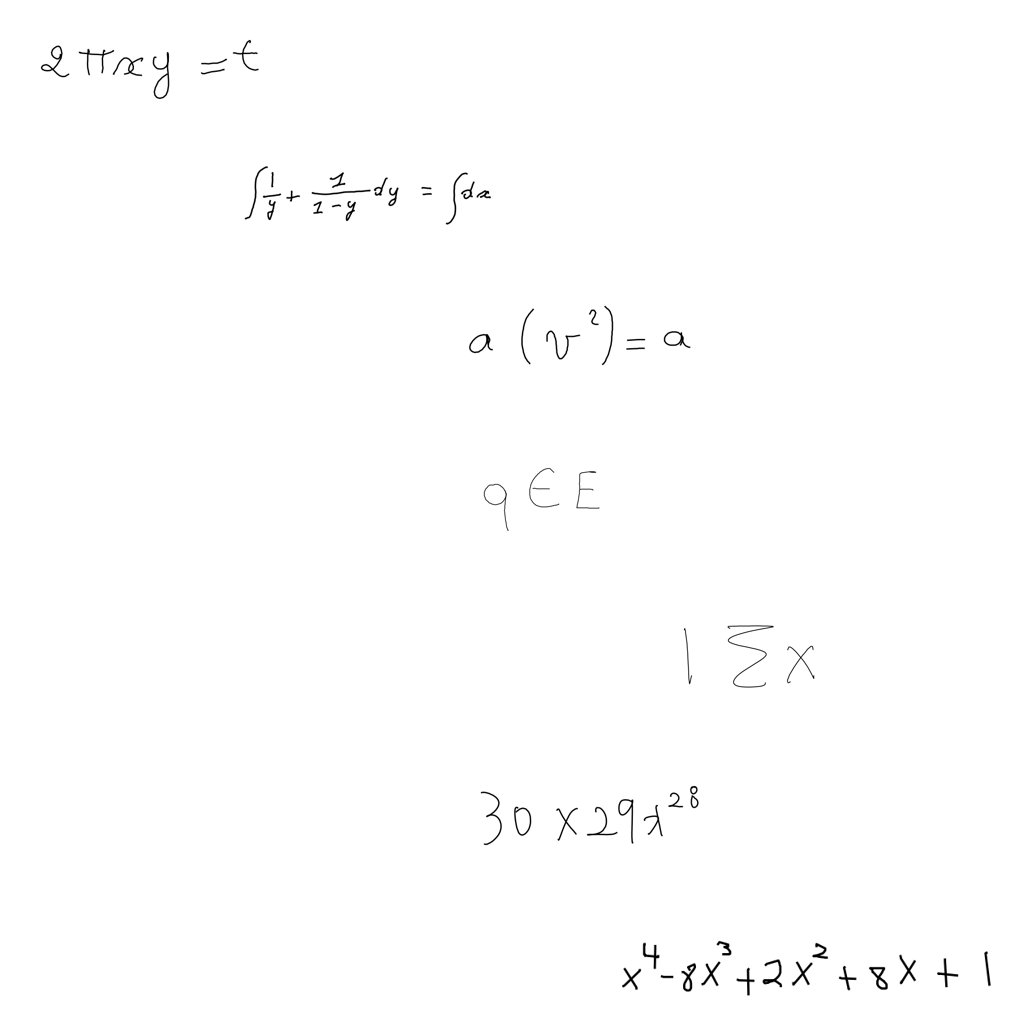 2πxy = t
∫ 1/y + 1/(1-y) dy = ∫dx
a (v²) = a
q ∈ E
1 Σ x
30 × 29x²⁸
x⁴ - 8x³ + 2x² + 8x + 1